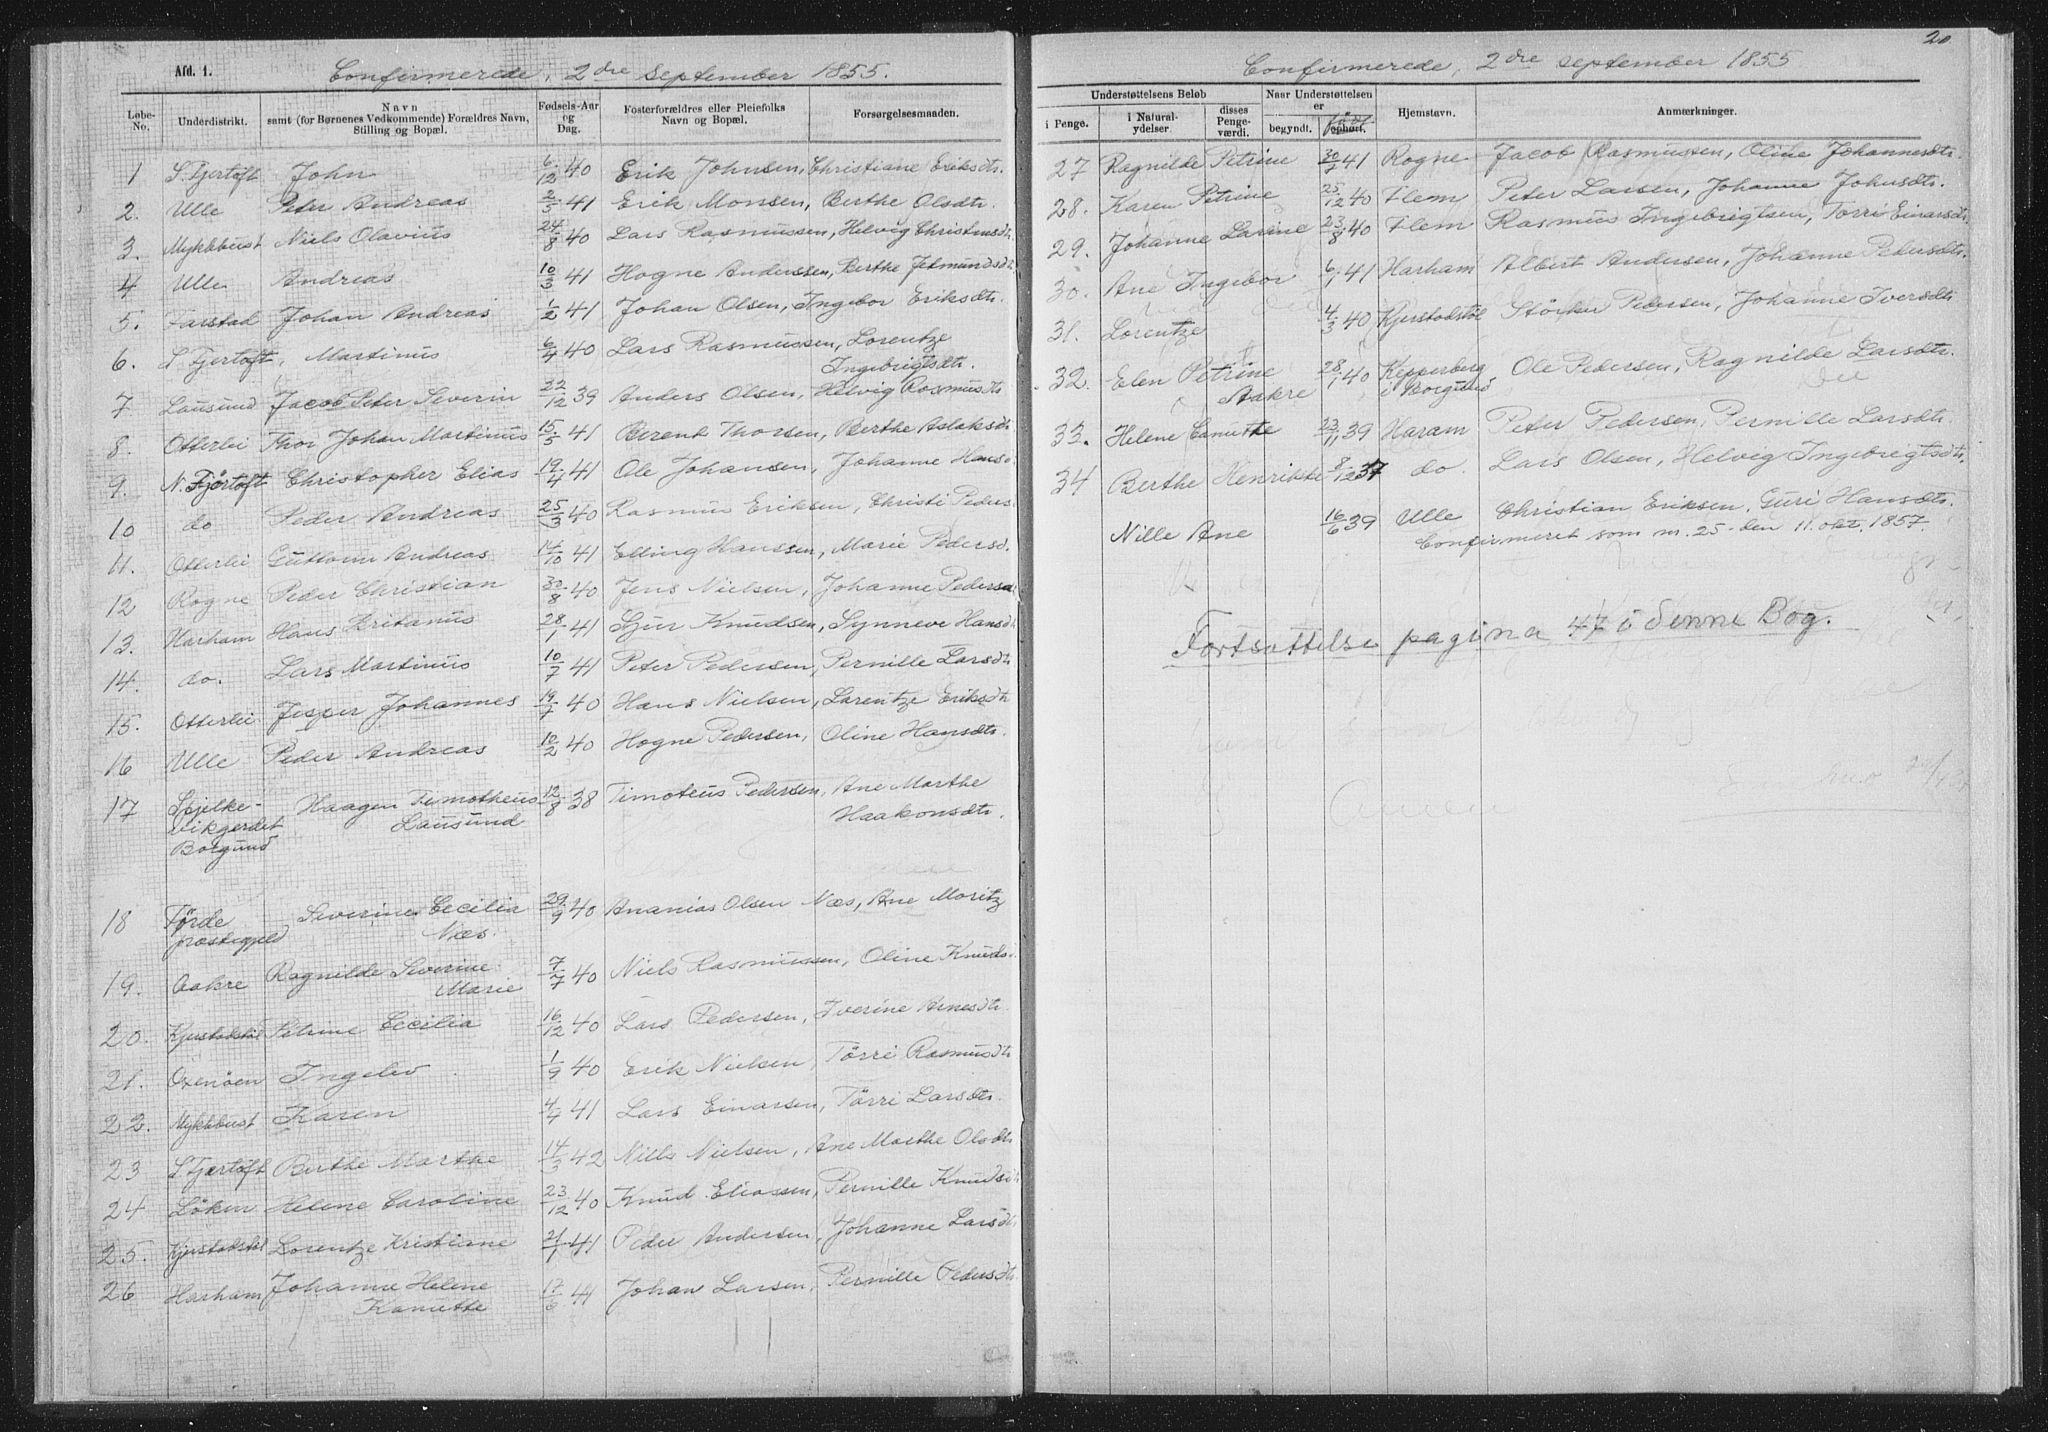 Afd. 1.
Confirmerede, 2dre September 1855.
Løbe-No. Underdistrikt. Navn samt (for Børnenes Vedkommende) Forældres Navn, Stilling og Bopæl. Fødsels-Aar og Dag. Fosterforældres eller Pleiefolks Navn og Bopæl. Forsørgelsesmaaden.
1 S Fjertoft John 6/12 40 Erik Johnsen, Christiane Eriksdtr.
2. Ulle Peter Andreas 2/3 41 Erik Monsen, Berthe Olsdtr.
3. Mykkbust Niels Olavius 24/8 40 Lars Rasmussen, Helvig Christensdtr.
4 Ulle Andreas 10/3 41 Hogne Anderssen, Berthe Jetmundsdtr
5. Farstad Johan Andreas 1/2 41 Johan Olsen, Ingebor Eriksdtr.
6. S Fjertoft, Martinus 6/4 40 Lars Rasmussen, Lorentze
Ingebrigtsdtr.
7 Lausund Jacob Peter Severin 22/12 39 Anders Olsen, Helvig Rasmusdtr
8. Otterlei Thor Johan Martinus 15/5 41 Berent Thorsen, Berthe Aslaksdtr
9. N. Fjørtoft Christopher Elias 19/4 41 Ole Johansen, Johanne Hansd.
10 do Peder Andreas 25/3 40 Rasmus Eriksen, Christi Peders.
11. Otterlei Guttorm Andreas 14/10 41 Elling Hanssen, Marie Pedersd.
12 Rogne Peder Christian 30/8 40 Jens Nielsen, Johanne Pedersd.
13. Harham Hans Zritanus 28/1 41 Sjur Knudsen, Synneve Hansdtr
14. do. Lars Martinus 10/7 41 Peter Pedersen, Pernille Larsdtr
15. Otterlei Jesper Johannes 19/7 40 Hans Nielsen, Lorentze Eriksdtr
16 Ulle Peder Andreas 10/2 40 Hogne Pedersen, Oline Hansdtr.
17 Spjelke- Haagen Timotheus 12/8 38 Timoteus Pedersen, Ane Marthe
vikgerdet Lausund Haakonsdtr.
Borgund
18 Førde Severine Cecilia 29/9 40 Ananias Olsen Næs, Ane Moritz
præstegjeld Næs.
19. Aakre Ragnilde Severine 7/7 40 Niels Rasmussen, Oline Knuds.
Marie
20. Kjerstadstøl Petrine Cecilia 16/12 40 Lars Pedersen, Iverine Arnesdtr.
21. Oxenöen Ingelev 1/9 40 Erik Nielsen, Törri Rasmusdtr
22. Mykkbust Karen 4/7 41 Lars Einarsen, Törri Larsdtr.
23 S Fjertoft Berthe Marthe 14/3 42 Nills Nielsen, Ane Marthe Olsdtr
24 Løken Helene Caroline 23/12 40 Knud Eliassen, Pernille Knudsdtr
25. Kjerstadstøl Lorentze Kristiane 21/1 41 Peder Andersen, Johanne Larsdtr
26 Harham Johanne Helene 17/6 41 Johan Larsen, Pernille Pedersdtr
Kanutte
20
Confirmerede, 2dre September 1855
Understøttelsens Beløb Naar Understøttelsen er Hjemstavn. Anmærkninger.
i Penge. i Natural-ydelser. disses Penge-værdi. begyndt. ophørt.
27 Ragnilde Petrine 30/7 41 Rogne Jacob Rasmussen, Oline Johannesdtr.
28. Karen Petrine 25/12 40 Flem Peter Larsen, Johanne Johnsdtr.
29. Johanne Lavine 23/8 40 Flem Rasmus Ingebrigtsen, Torri Einarsdtr
30. Ane Ingebor 6/1 41 Harham Albert Andersen, Johanne Pedersdtr.
31. Lorentze 4/3 40 Kjerstadstöl Störker Pedersen, Johanne Iversdtr
32. Elen Petrine 28/1 40 Kepperberg Ole Pedersen, Ragnilde Larsdtr.
Aakre i Borgund
33. Helene Canutte 23/11 39 Haram Peter Pedersen, Pernille Larsdtr
34 Berthe Henrikke 8/12 37 do. Lars Olsen, Helvig Ingebrigtsdtr.
Nille Ane 16/6 39 Ulle Christian Eriksen, Guri Hansdtr.
Confirmeret som nr. 25 den 11. okt. 1857.
Fortsættelse pagina 47 i denne Bog.